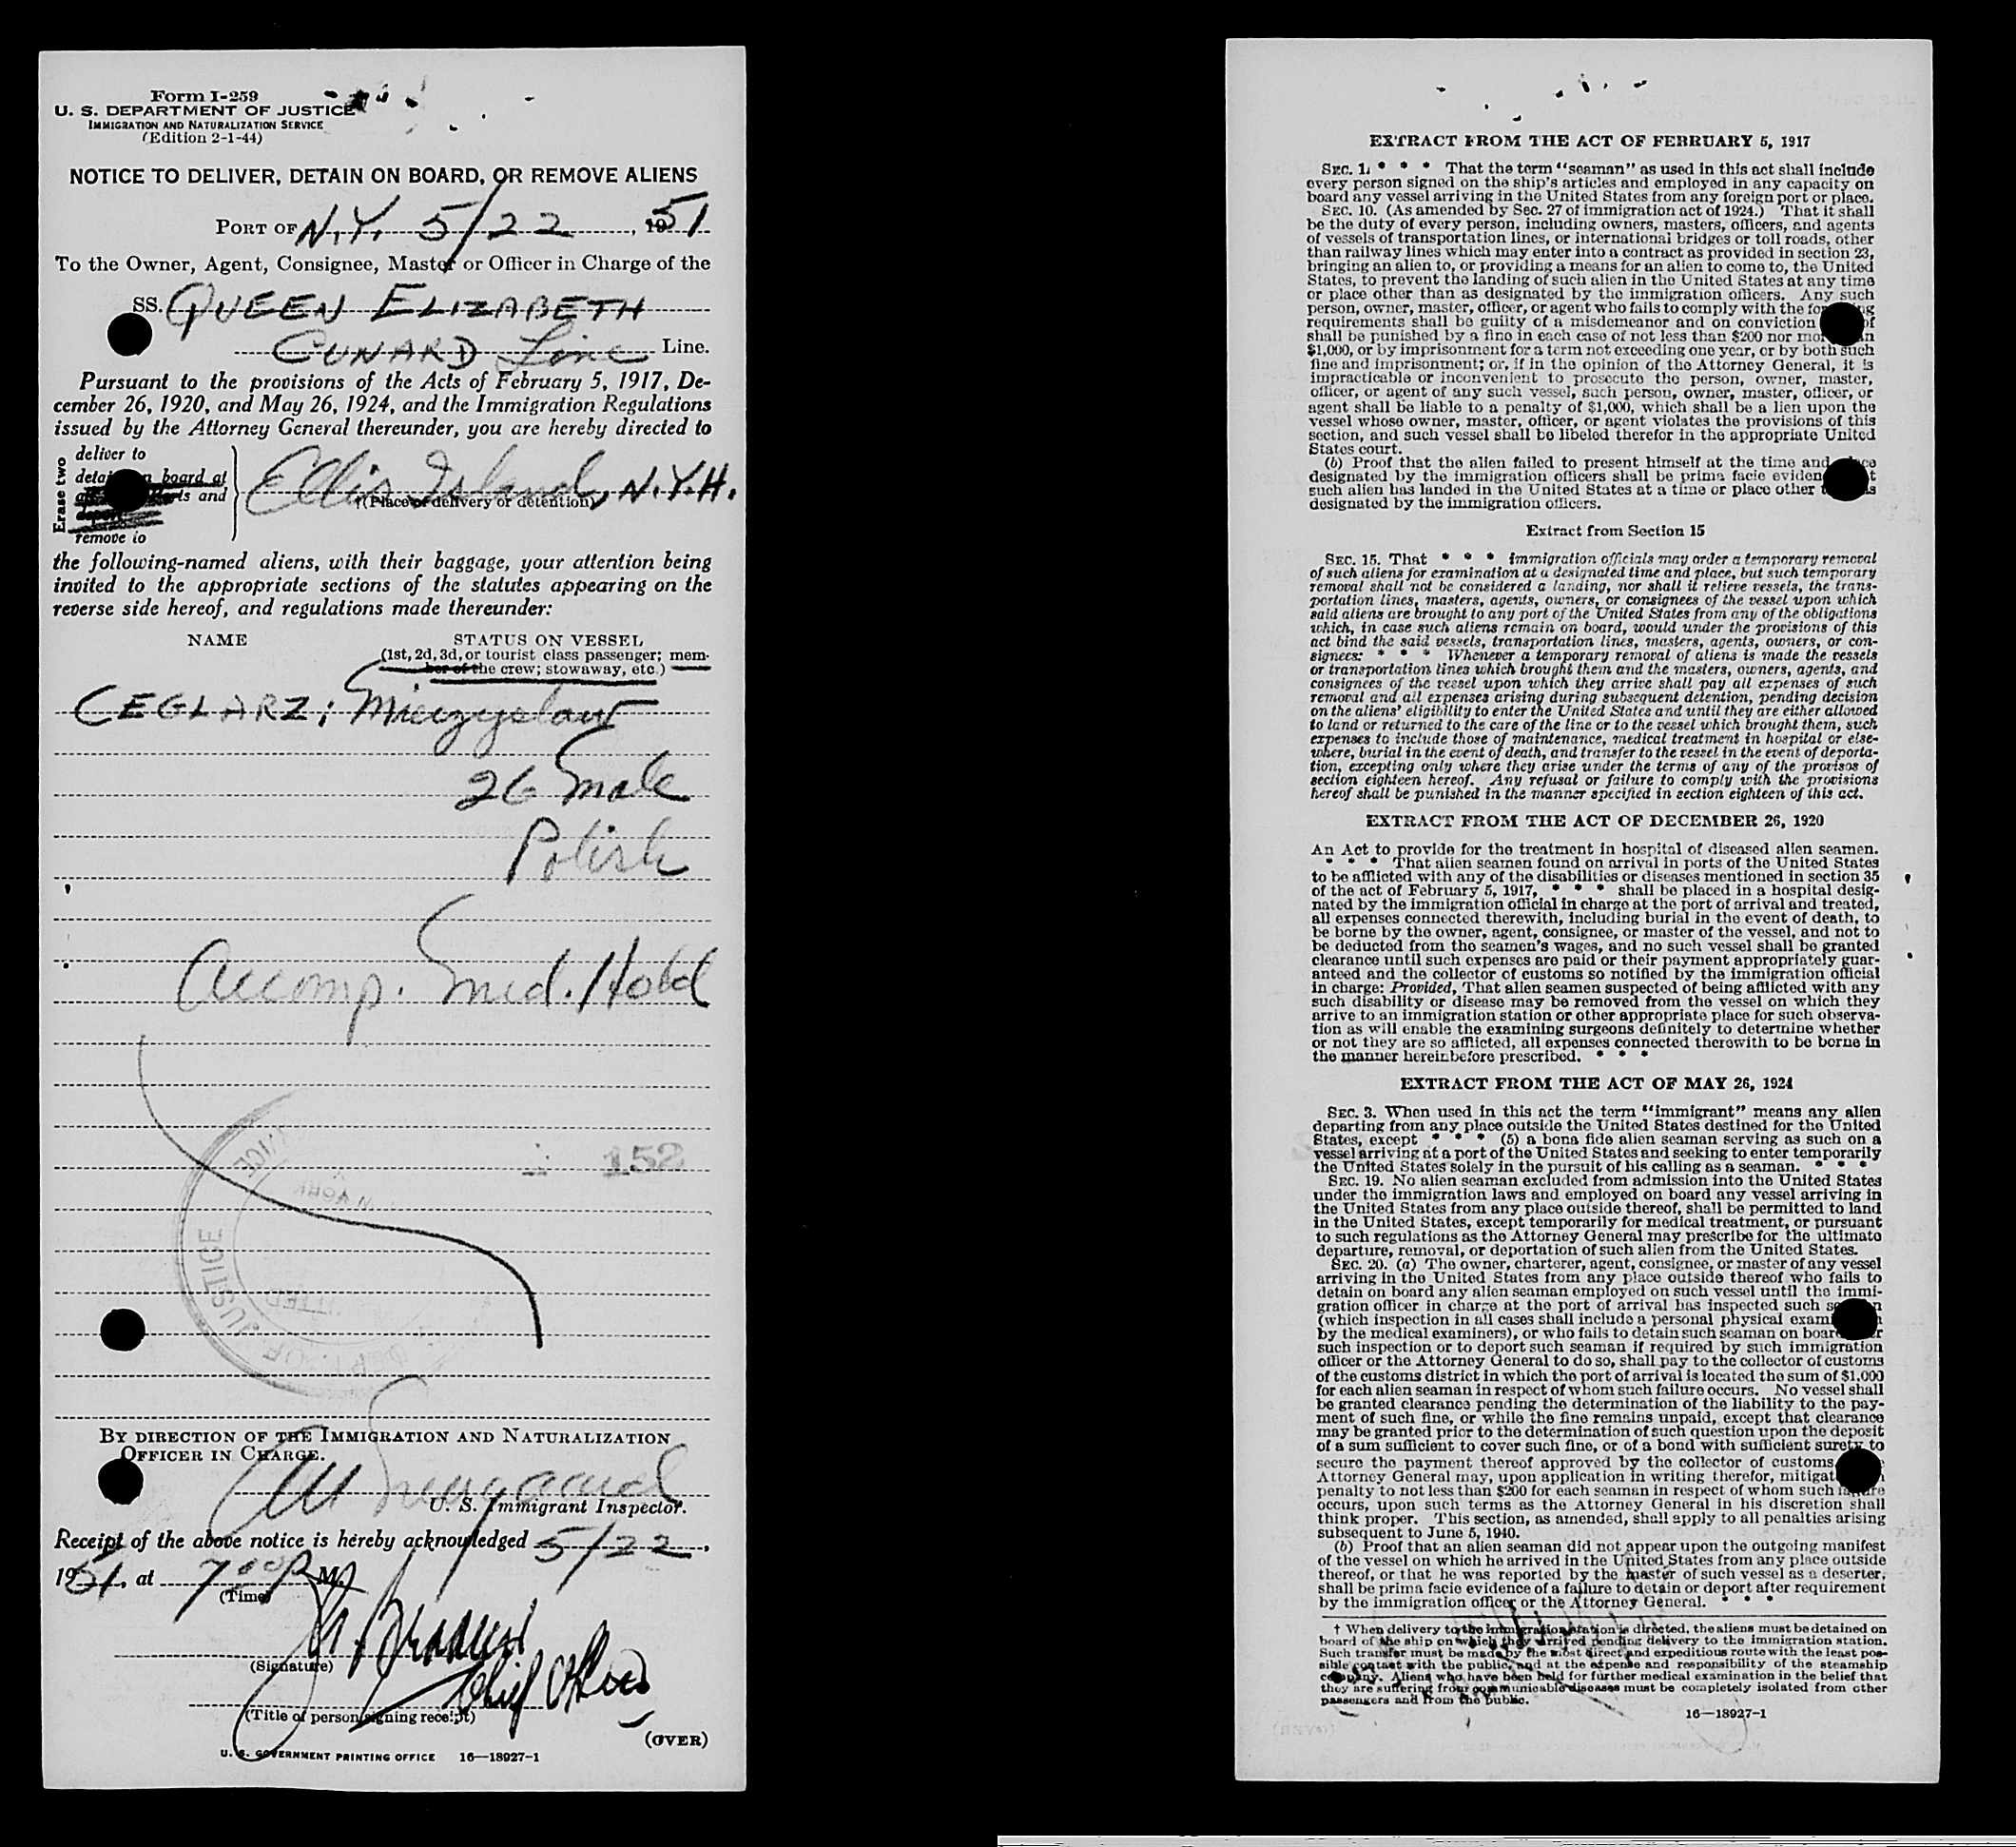 Form I-259
U. S. DEPARTMENT OF JUSTICE
IMMIGRATION AND NATURALIZATION SERVICE
(Edition 2-1-44)
NOTICE TO DELIVER, DETAIN ON BOARD, OR REMOVE ALIENS
PORT OF N.Y. 5/22, 1951
To the Owner, Agent, Consignee, Master or Officer in Charge of the
SS. QUEEN ELIZABETH
CUNARD Line Line.
Pursuant to the provisions of the Acts of February 5, 1917, De-
cember 26, 1920, and May 26, 1924, and the Immigration Regulations
issued by the Attorney General thereunder, you are hereby directed to
Erase two
deliver to
board at
and
remove to
Ellis Island, N.Y.H.
†(Place of delivery or detention)
the following-named aliens, with their baggage, your attention being
invited to the appropriate sections of the statutes appearing on the
reverse side hereof, and regulations made thereunder:
NAME STATUS ON VESSEL
(1st, 2d, 3d, or tourist class passenger; mem-
ber of the crew; stowaway, etc.)
CEGLARZ; Mieczyslaw
26 male
Polish
Accomp. Med. Hold
152
JUSTICE
BY DIRECTION OF THE IMMIGRATION AND NATURALIZATION
OFFICER IN CHARGE.
U. S. Immigrant Inspector.
Receipt of the above notice is hereby acknowledged 5/22,
1951, at 7 00 P M.
(Time)
(Signature)
Chief
(Title of person signing receipt)
(OVER)
U. S. GOVERNMENT PRINTING OFFICE 16—18927-1
EXTRACT FROM THE ACT OF FEBRUARY 5, 1917
SEC. 1. * * * That the term "seaman" as used in this act shall include
every person signed on the ship's articles and employed in any capacity on
board any vessel arriving in the United States from any foreign port or place.
SEC. 10. (As amended by Sec. 27 of immigration act of 1924.) That it shall
be the duty of every person, including owners, masters, officers, and agents
of vessels of transportation lines, or international bridges or toll roads, other
than railway lines which may enter into a contract as provided in section 23,
bringing an alien to, or providing a means for an alien to come to, the United
States, to prevent the landing of such alien in the United States at any time
or place other than as designated by the immigration officers. Any such
person, owner, master, officer, or agent who fails to comply with the
requirements shall be guilty of a misdemeanor and on conviction
shall be punished by a fine in each case of not less than $200 nor
$1,000, or by imprisonment for a term not exceeding one year, or by both such
fine and imprisonment; or, if in the opinion of the Attorney General, it is
impracticable or inconvenient to prosecute the person, owner, master,
officer, or agent of any such vessel, such person, owner, master, officer, or
agent shall be liable to a penalty of $1,000, which shall be a lien upon the
vessel whose owner, master, officer, or agent violates the provisions of this
section, and such vessel shall be libeled therefor in the appropriate United
States court.
(b) Proof that the alien failed to present himself at the time and
designated by the immigration officers shall be prima facie
such alien has landed in the United States at a time or place other
designated by the immigration officers.
Extract from Section 15
SEC. 15. That * * * immigration officials may order a temporary removal
of such aliens for examination at a designated time and place, but such temporary
removal shall not be considered a landing, nor shall it relieve vessels, the trans-
portation lines, masters, agents, owners, or consignees of the vessel upon which
said aliens are brought to any port of the United States from any of the obligations
which, in case such aliens remain on board, would under the provisions of this
act bind the said vessels, transportation lines, masters, agents, owners, or con-
signees: * * * Whenever a temporary removal of aliens is made the vessels
or transportation lines which brought them and the masters, owners, agents, and
consignees of the vessel upon which they arrive shall pay all expenses of such
removal and all expenses arising during subsequent detention, pending decision
on the aliens' eligibility to enter the United States and until they are either allowed
to land or returned to the care of the line or to the vessel which brought them, such
expenses to include those of maintenance, medical treatment in hospital or else-
where, burial in the event of death, and transfer to the vessel in the event of deporta-
tion, excepting only where they arise under the terms of any of the provisos of
section eighteen hereof. Any refusal or failure to comply with the provisions
hereof shall be punished in the manner specified in section eighteen of this act.
EXTRACT FROM THE ACT OF DECEMBER 26, 1920
An Act to provide for the treatment in hospital of diseased alien seamen.
* * * That alien seamen found on arrival in ports of the United States
to be afflicted with any of the disabilities or diseases mentioned in section 35
of the act of February 5, 1917, * * * shall be placed in a hospital desig-
nated by the immigration official in charge at the port of arrival and treated,
all expenses connected therewith, including burial in the event of death, to
be borne by the owner, agent, consignee, or master of the vessel, and not to
be deducted from the seamen's wages, and no such vessel shall be granted
clearance until such expenses are paid or their payment appropriately guar-
anteed and the collector of customs so notified by the immigration official
in charge: Provided, That alien seamen suspected of being afflicted with any
such disability or disease may be removed from the vessel on which they
arrive to an immigration station or other appropriate place for such observa-
tion as will enable the examining surgeons definitely to determine whether
or not they are so afflicted, all expenses connected therewith to be borne in
the manner hereinbefore prescribed. * * *
EXTRACT FROM THE ACT OF MAY 26, 1924
SEC. 3. When used in this act the term "immigrant" means any alien
departing from any place outside the United States destined for the United
States, except * * * (5) a bona fide alien seaman serving as such on a
vessel arriving at a port of the United States and seeking to enter temporarily
the United States solely in the pursuit of his calling as a seaman. * * *
SEC. 19. No alien seaman excluded from admission into the United States
under the immigration laws and employed on board any vessel arriving in
the United States from any place outside thereof, shall be permitted to land
in the United States, except temporarily for medical treatment, or pursuant
to such regulations as the Attorney General may prescribe for the ultimate
departure, removal, or deportation of such alien from the United States.
SEC. 20. (a) The owner, charterer, agent, consignee, or master of any vessel
arriving in the United States from any place outside thereof who fails to
detain on board any alien seaman employed on such vessel until the immi-
gration officer in charge at the port of arrival has inspected such
(which inspection in all cases shall include a personal physical
by the medical examiners), or who fails to detain such seaman on board
such inspection or to deport such seaman if required by such immigration
officer or the Attorney General to do so, shall pay to the collector of customs
of the customs district in which the port of arrival is located the sum of $1,000
for each alien seaman in respect of whom such failure occurs. No vessel shall
be granted clearance pending the determination of the liability to the pay-
ment of such fine, or while the fine remains unpaid, except that clearance
may be granted prior to the determination of such question upon the deposit
of a sum sufficient to cover such fine, or of a bond with sufficient surety to
secure the payment thereof approved by the collector of customs.
Attorney General may, upon application in writing therefor,
penalty to not less than $200 for each seaman in respect of whom such failure
occurs, upon such terms as the Attorney General in his discretion shall
think proper. This section, as amended, shall apply to all penalties arising
subsequent to June 5, 1940.
(b) Proof that an alien seaman did not appear upon the outgoing manifest
of the vessel on which he arrived in the United States from any place outside
thereof, or that he was reported by the master of such vessel as a deserter,
shall be prima facie evidence of a failure to detain or deport after requirement
by the immigration officer or the Attorney General. * * *
† When delivery to the immigration station is directed, the aliens must be detained on
board of the ship on which they arrived pending delivery to the immigration station.
Such transfer must be made by the most direct and expeditious route with the least pos-
sible contact with the public, and at the expense and responsibility of the steamship
company. Aliens who have been held for further medical examination in the belief that
they are suffering from communicable diseases must be completely isolated from other
passengers and from the public.
16—18927-1